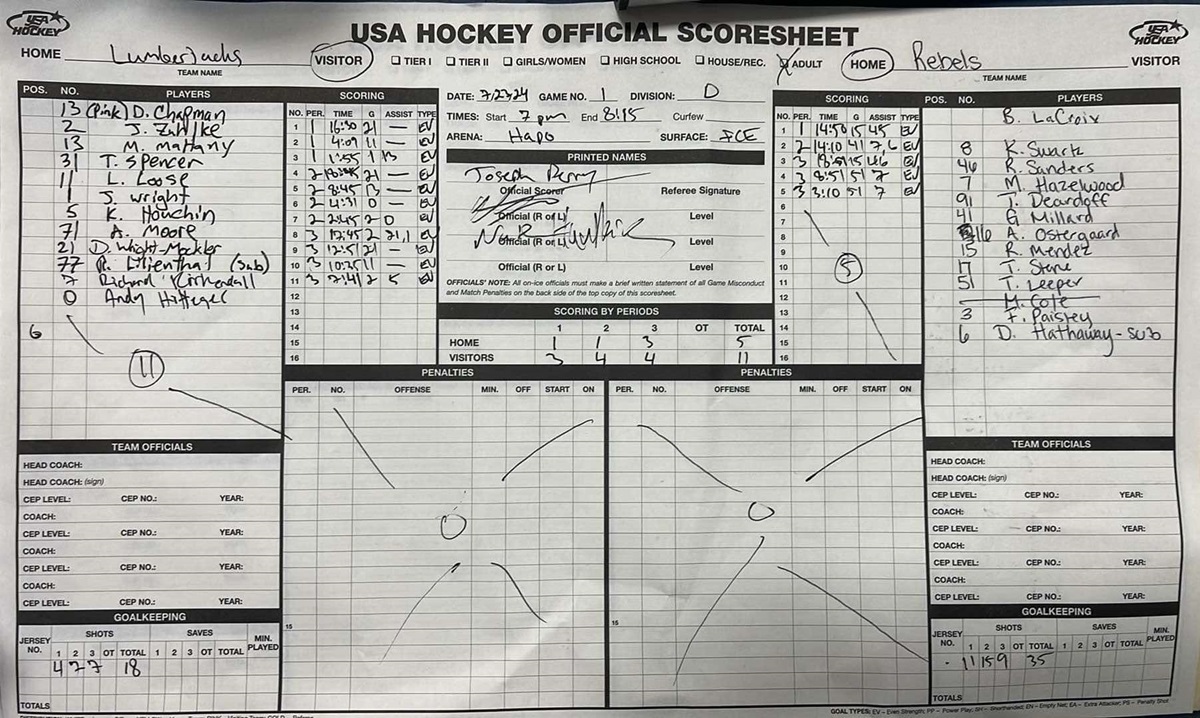 USA HOCKEY
USA HOCKEY OFFICIAL SCORESHEET
USA HOCKEY
HOME Lumberjacks VISITOR
TEAM NAME
☐ TIER I ☐ TIER II ☐ GIRLS/WOMEN ☐ HIGH SCHOOL ☐ HOUSE/REC. ☒ ADULT
HOME Rebels VISITOR
TEAM NAME
POS. NO. PLAYERS
13 (Pink) D. Chapman
2 J. Zahlke
13 M. Mattany
31 T. Spencer
11 L. Loose
1 J. Wright
5 K. Houchin
71 A. Moore
21 D. Wright-Mockler
77 R. Lilienthal (Sub)
7 Richard Kirkendall
0 Andy
6
11
SCORING
NO. PER. TIME G ASSIST TYPE
1 1 16:50 21 — EV
2 1 4:09 11 — EV
3 1 1:55 1 13 EV
4 2 21 — EV
5 2 8:45 13 — EV
6 2 4:31 0 — EV
7 2 2:45 2 0 EV
8 3 12:45 2 21,1 EV
9 3 12:51 21 — EV
10 3 10:25 11 — EV
11 3 7:41 2 5 EV
12
13
14
15
16
DATE: 7/23/24 GAME NO. 1 DIVISION: D
TIMES: Start 7pm End 8:15 Curfew
ARENA: Hapo SURFACE: ICE
PRINTED NAMES
Joseph Perry
Official Scorer Referee Signature
Official (R or L) Level
Official (R or L) Level
Official (R or L) Level
OFFICIALS' NOTE: All on-ice officials must make a brief written statement of all Game Misconduct
and Match Penalties on the back side of the top copy of this scoresheet.
SCORING BY PERIODS
1 2 3 OT TOTAL
HOME 1 1 3 5
VISITORS 3 4 4 11
SCORING
NO. PER. TIME G ASSIST TYPE
1 1 14:50 15 45 EV
2 2 14:10 41 7,6 EV
3 3 15 46 EV
4 3 8:51 51 7 EV
5 3 3:10 51 7 EV
6
7
8
9
10
11
12
13
14
15
16
5
POS. NO. PLAYERS
B. LaCroix
8 K. Swartz
46 R. Sanders
7 M. Hazelwood
91 J. Deardoff
41 G Millard
16 A. Ostergaard
15 R. Mendez
17 T. Stone
51 T. Leeper
M. Cote
3 F. Paisley
6 D. Hathaway - sub
PENALTIES
PER. NO. OFFENSE MIN. OFF START ON
0
15
PENALTIES
PER. NO. OFFENSE MIN. OFF START ON
0
15
TEAM OFFICIALS
HEAD COACH:
HEAD COACH: (sign)
CEP LEVEL: CEP NO.: YEAR:
COACH:
CEP LEVEL: CEP NO.: YEAR:
COACH:
CEP LEVEL: CEP NO.: YEAR:
COACH:
CEP LEVEL: CEP NO.: YEAR:
GOALKEEPING
JERSEY NO. SHOTS SAVES MIN. PLAYED
1 2 3 OT TOTAL 1 2 3 OT TOTAL
4 7 7 18
TOTALS
TEAM OFFICIALS
HEAD COACH:
HEAD COACH: (sign)
CEP LEVEL: CEP NO.: YEAR:
COACH:
CEP LEVEL: CEP NO.: YEAR:
COACH:
CEP LEVEL: CEP NO.: YEAR:
COACH:
CEP LEVEL: CEP NO.: YEAR:
GOALKEEPING
JERSEY NO. SHOTS SAVES MIN. PLAYED
1 2 3 OT TOTAL 1 2 3 OT TOTAL
11 15 9 35
TOTALS
GOAL TYPES: EV – Even Strength; PP – Power Play; SH – Shorthanded; EN – Empty Net; EA – Extra Attacker; PS – Penalty Shot